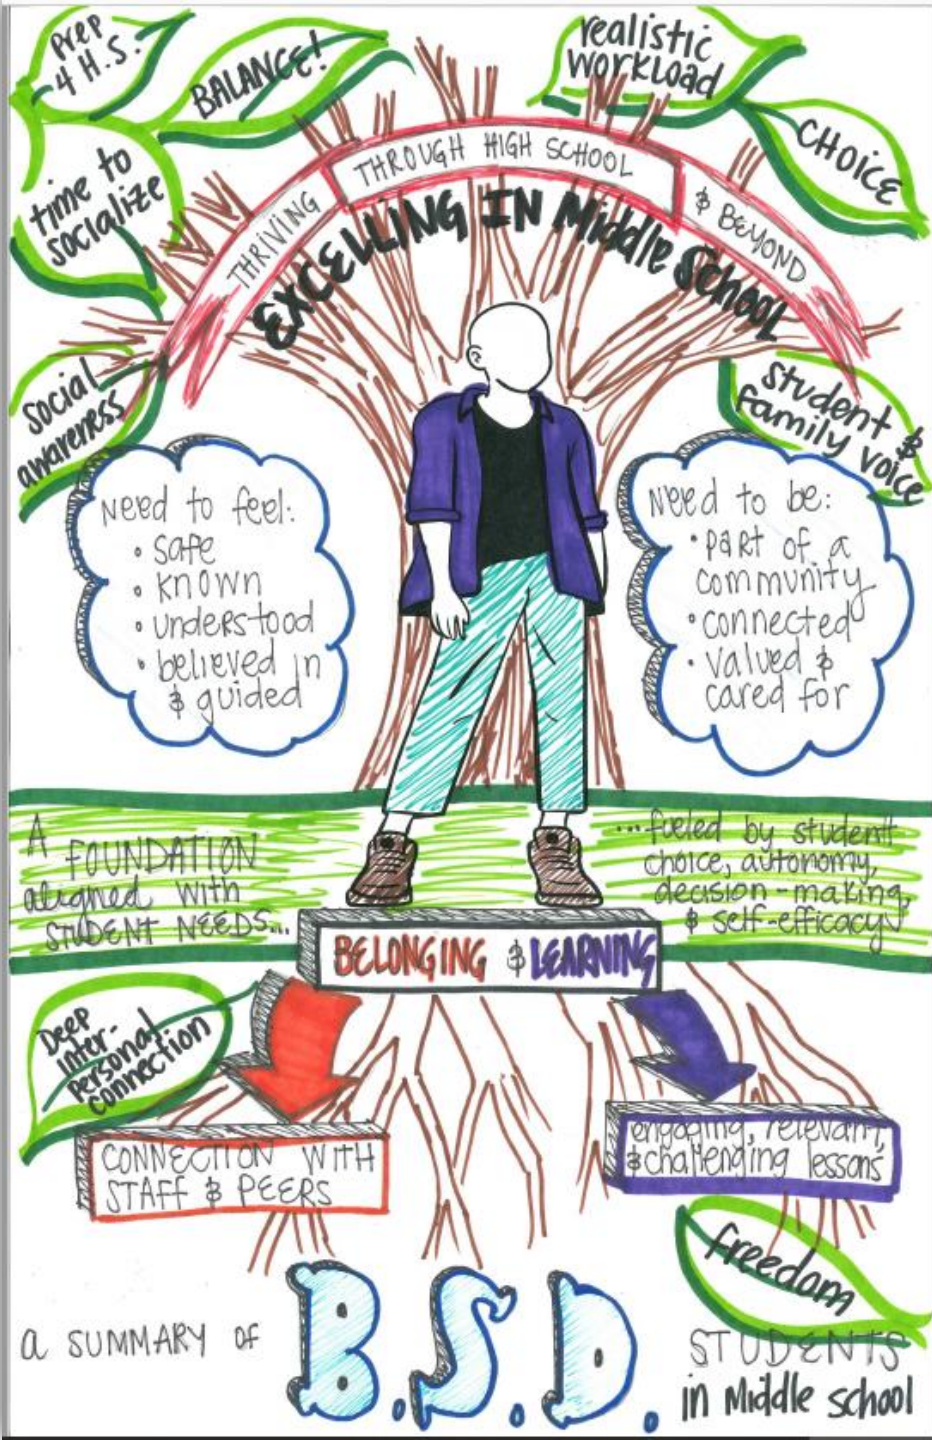 Prep
4 H.S.
BALANCE!
realistic
WORKLOAD
CHOICE
time to
socialize
THRIVING
THROUGH HIGH SCHOOL
& BEYOND
EXCELLING IN Middle School
Social
awareness
Student &
Family voice
Need to feel:
• safe
• known
• understood
• believed in
& guided
Need to be:
• part of a
community
• connected
• valued &
cared for
A FOUNDATION
aligned with
STUDENT NEEDS...
...fueled by student
choice, autonomy,
decision-making,
& self-efficacy
BELONGING & LEARNING
Deep
inter-
personal
connection
CONNECTION WITH
STAFF & PEERS
engaging, relevant,
& challenging lessons
freedom
a SUMMARY OF
B.S.D.
STUDENTS
in Middle school